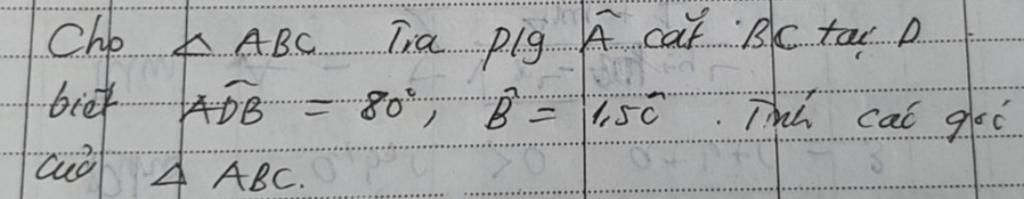 Cho △ ABC Tia p/g Â cắt BC tại D
biết ADB = 80°, B̂ = 1,5Ĉ. Tính các góc
của △ ABC.